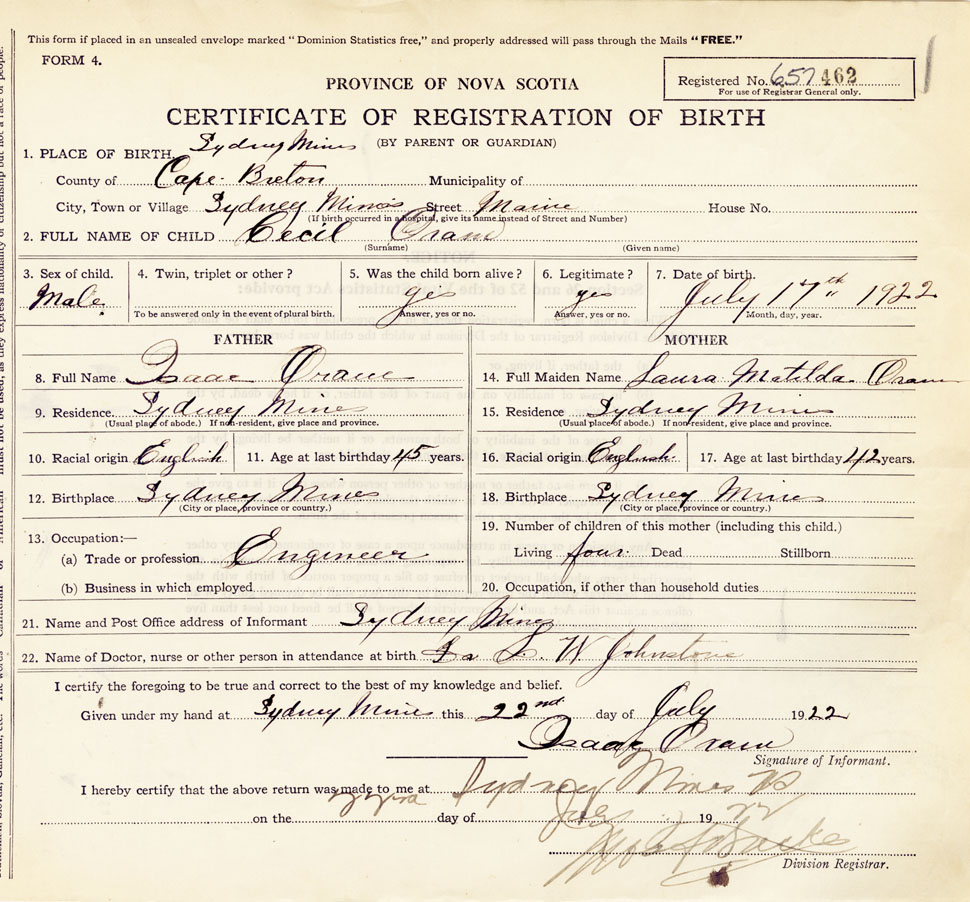 This form if placed in an unsealed envelope marked "Dominion Statistics free," and properly addressed will pass through the Mails "FREE."
FORM 4.
PROVINCE OF NOVA SCOTIA
Registered No. 657462
For use of Registrar General only.
CERTIFICATE OF REGISTRATION OF BIRTH
(BY PARENT OR GUARDIAN)
1. PLACE OF BIRTH, Sydney Mines
County of Cape Breton Municipality of
City, Town or Village Sydney Mines Street Maine House No.
(If birth occurred in a hospital, give its name instead of Street and Number)
2. FULL NAME OF CHILD Cecil Oram
(Surname) (Given name)
3. Sex of child. 4. Twin, triplet or other? 5. Was the child born alive? 6. Legitimate? 7. Date of birth.
Male yes yes July 17th 1922
To be answered only in the event of plural birth. Answer, yes or no. Answer, yes or no. Month, day, year.
FATHER MOTHER
8. Full Name Isaac Oram 14. Full Maiden Name Laura Matilda Oram
9. Residence. Sydney Mines 15. Residence Sydney Mines
(Usual place of abode.) If non-resident, give place and province. (Usual place of abode.) If non-resident, give place and province.
10. Racial origin English 11. Age at last birthday 45 years. 16. Racial origin English 17. Age at last birthday 42 years.
12. Birthplace Sydney Mines 18. Birthplace Sydney Mines
(City or place, province or country.) (City or place, province or country.)
13. Occupation:— 19. Number of children of this mother (including this child.)
(a) Trade or profession Engineer Living four. Dead Stillborn
(b) Business in which employed 20. Occupation, if other than household duties
21. Name and Post Office address of Informant Sydney Mines
22. Name of Doctor, nurse or other person in attendance at birth L. W Johnstone
I certify the foregoing to be true and correct to the best of my knowledge and belief.
Given under my hand at Sydney Mines this 22nd day of July 1922
Isaac Oram
Signature of Informant.
I hereby certify that the above return was made to me at Sydney Mines
on the day of July 19 22
Division Registrar.